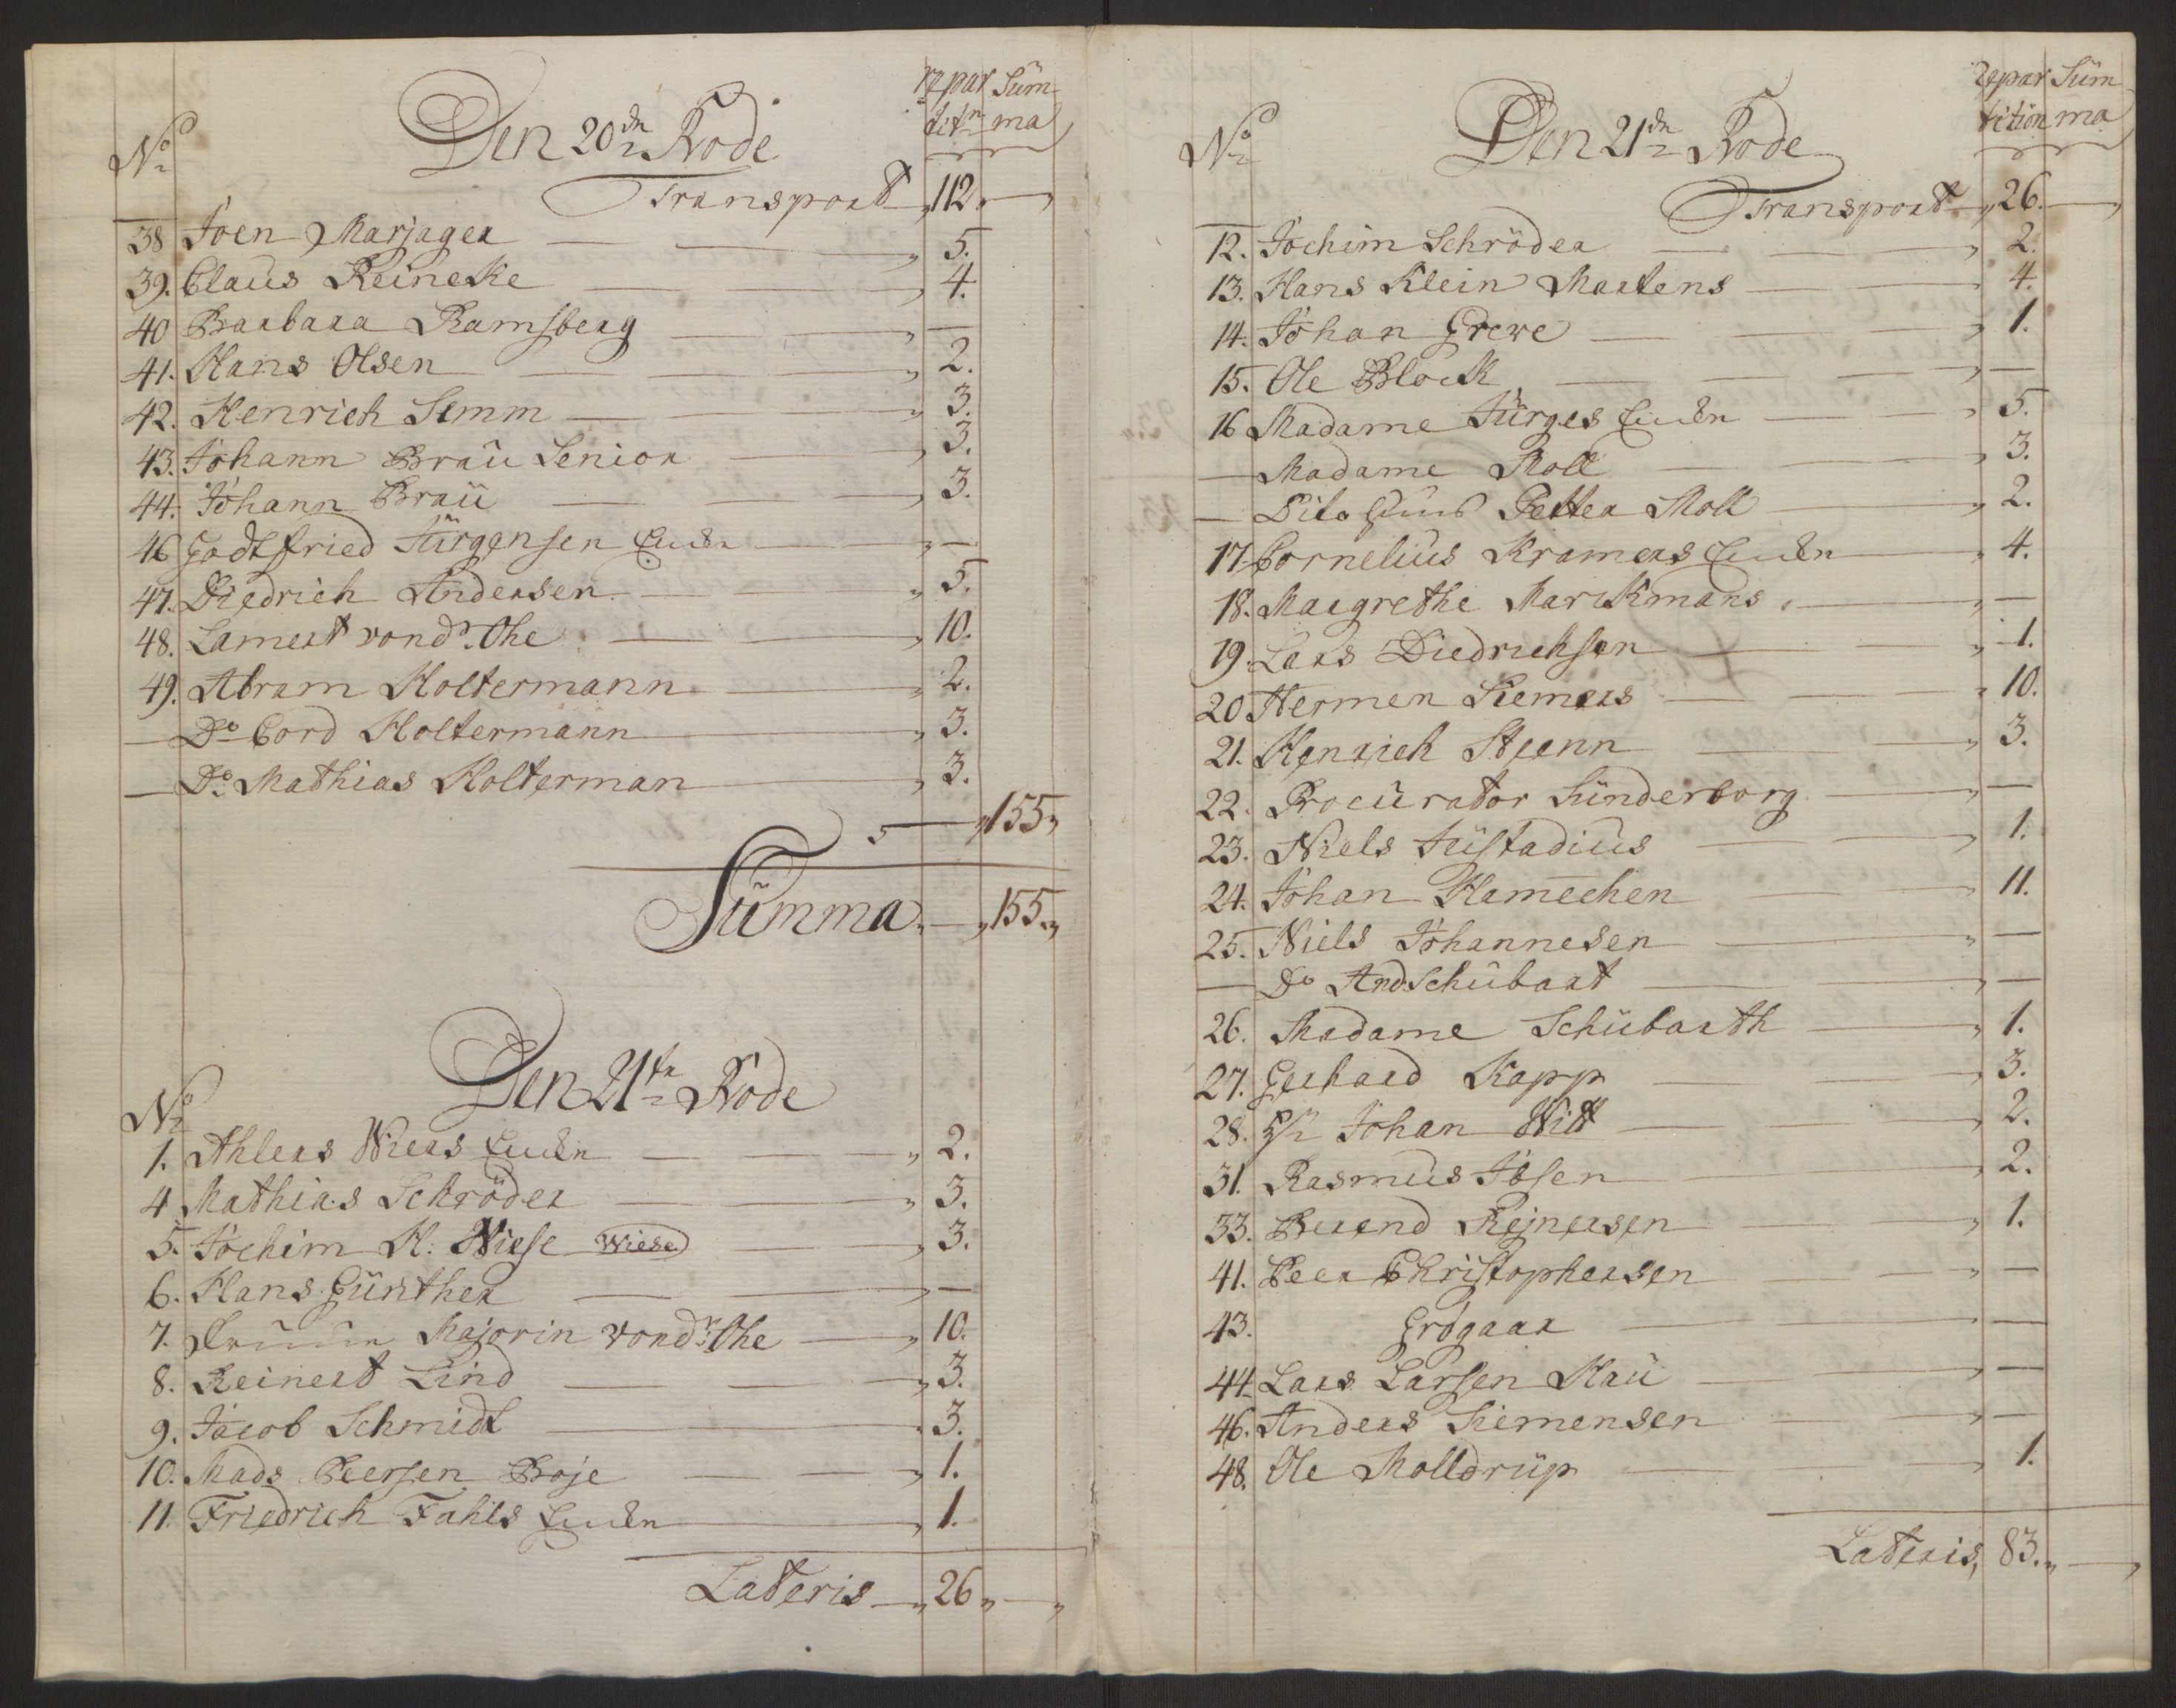 repar Sũm
titn ma
Den 20dn Rode
No
Transport 112.
38 Joen Marjager 5.
39. Claus Reineke 4.
40 Barbara Ramsberg —
41. Hans Olsen 2.
42. Henrich Simm 3.
43. Johann Braũ Senior 3.
44. Johann Braũ 3.
46 Godtfried Jũrgensen Enckn —
47. Diedrich Andersen 5.
48. Lamert vond. Ohe 10.
49. Abram Holtermann 2.
— Do Cord Holtermann 3.
— Do Mathias Holterman 3.
155
Sũmma 155
Den 21tn Rode
No
1. Ahlers Wiers Enckn 2.
4 Mathias Schröder 3.
5. Jochim H. Wiese Wiese 3.
6. Hans Gũnther —
7. Majorin vondr Ohe 10.
8. Reinert Lind 3.
9. Jacob Schmidt 3.
10. Mads Peersen Boje 1.
11. Friedrich Fahls Enckn 1.
Lateris 26
repar Sũm
tition ma
Den 21dn Rode
No
Transport 26.
12. Jochim Schröder 2.
13. Hans Klein Martens 4.
14. Johan Grewe 1.
15. Ole Block —
16 Madame Jũrges Enckn 5.
— Madame Moll 3.
— Dito Petter Moll 2.
17. Cornelius Kramers Enckn 4.
18. Margrethe Marckmans —
19. Lars Diedrichsen 1.
20 Hermen Siemers 10.
21. Henrich Steenn 3.
22. Procũrator Sũnderborg —
23. Niels Jũstadiũs 1.
24. Johan Hamechen 11.
25. Niels Johannesen —
— Do And. Schũbart —
26. Madame Schũbarth 1.
27. Gerhard Kapp 3.
28. Hr Johan Witt 2.
31. Rasmus Ibsen 2.
33. Berend Rejnersen 1.
41. Peer Christophersen —
43. Grøgaar —
44. Lars Larsen Haũ —
46. Anders Siemensen —
48. Ole Molldrũp 1.
Lateris, 83.